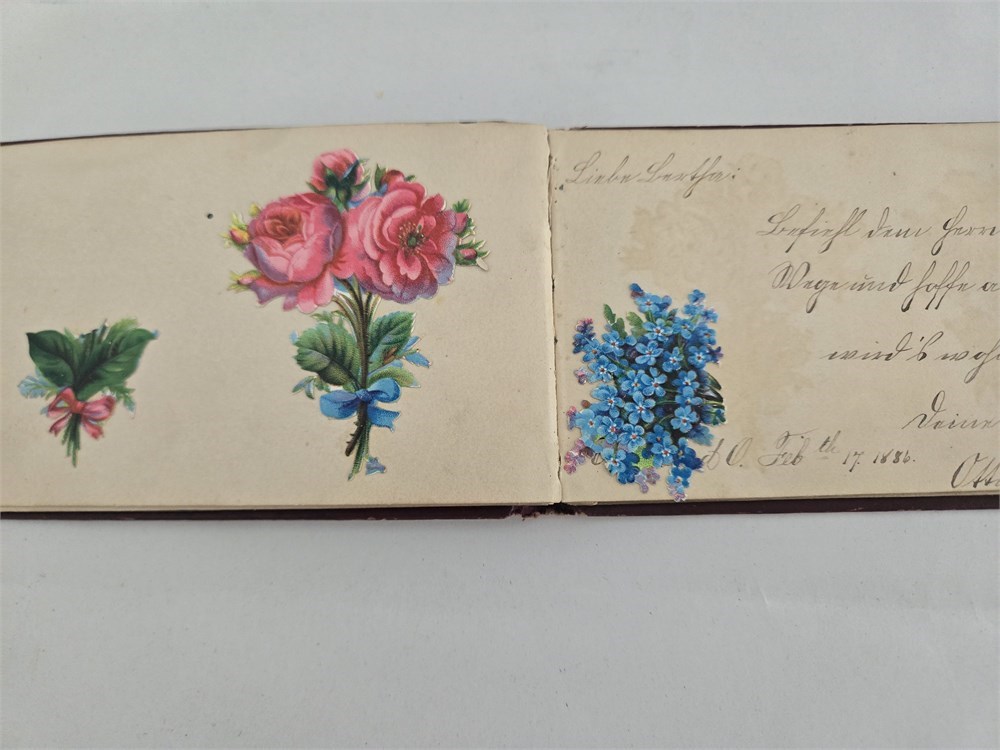 Liebe Bertha:
Befiehl dem Herrn
Wege und hoffe a
wird's woh
Deine
O. Feb th 17. 1886.
Otti